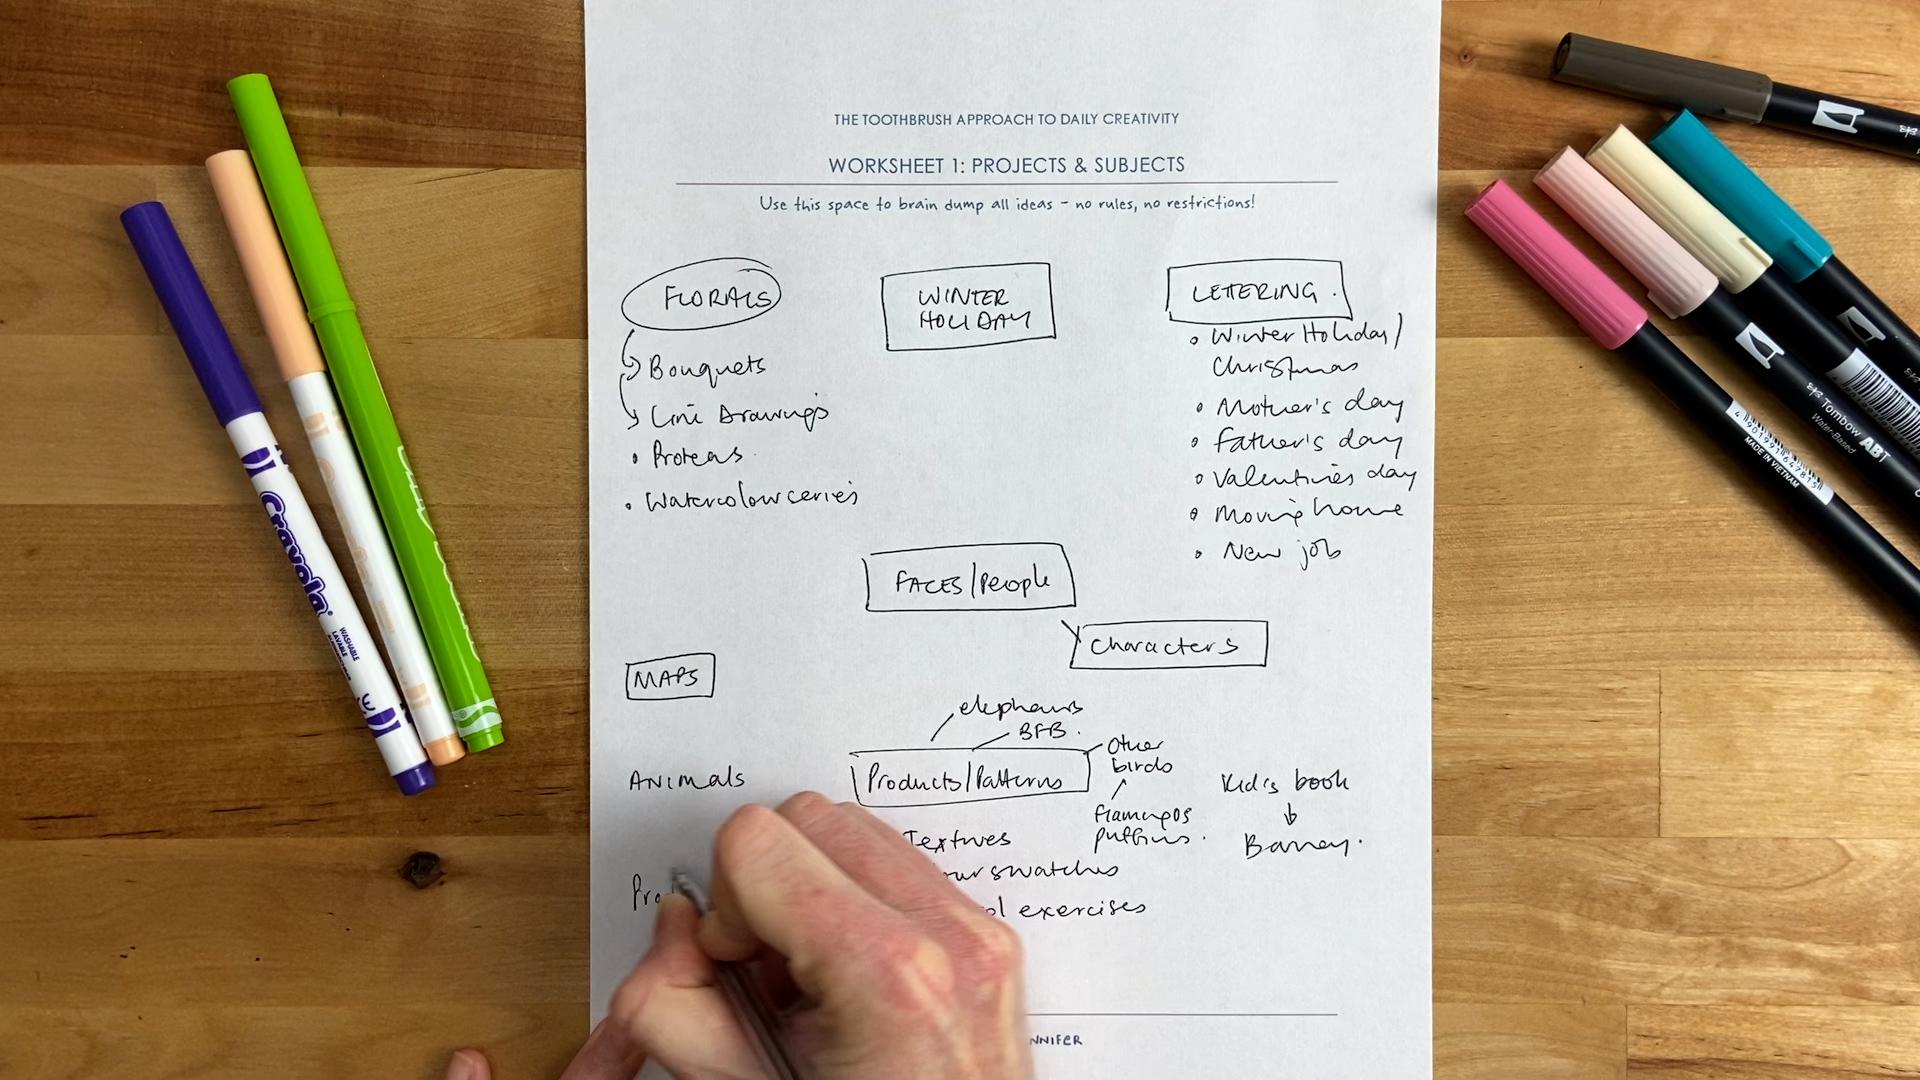 THE TOOTHBRUSH APPROACH TO DAILY CREATIVITY
WORKSHEET 1: PROJECTS & SUBJECTS
Use this space to brain dump all ideas - no rules, no restrictions!
FLORALS
Bouquets
Line Drawings
Proteas
Watercolour series
WINTER
HOLIDAY
LETTERING.
Winter Holiday/
Christmas
Mother's day
Father's day
Valentines day
Moving home
New job
FACES/People
Characters
MAPS
elephants
BFB.
Products/Patterns
Other
birds
flamingos
puffins.
Animals
Kid's book
Barney.
Textures
swatches
exercises
Crayola
WASHABLE
LAVABLE
Tombow ABT
Water-Based
4 901991 647815
MADE IN VIETNAM